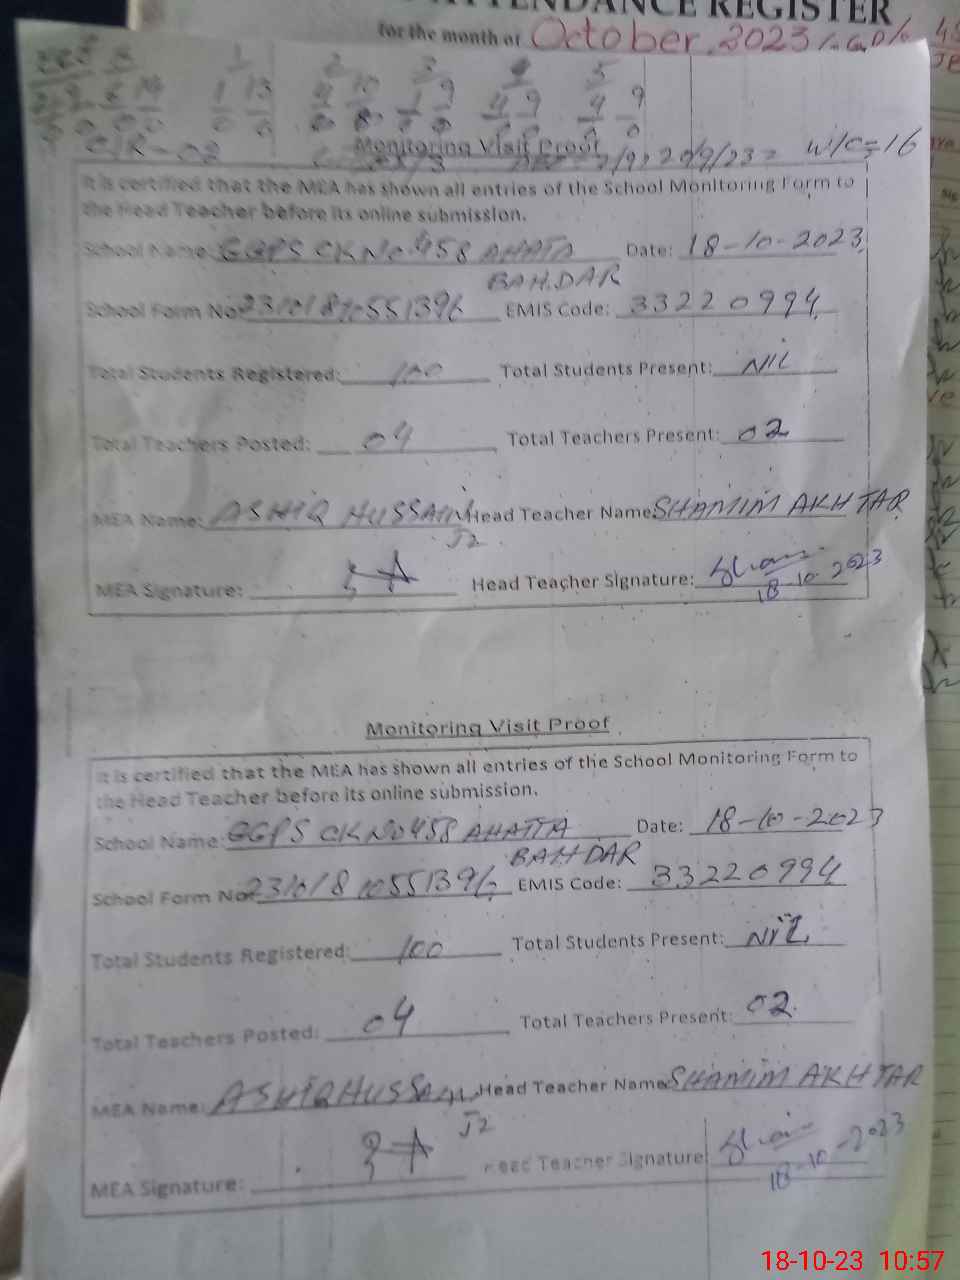 ATTENDANCE REGISTER
for the month of October, 2023
1 2 3 4 5
1 13 4 10 1 9 4 9 4 9
0 0 0 0
Monitoring Visit Proof
20/9/23 = w/c=16
It is certified that the MEA has shown all entries of the School Monitoring Form to
the Head Teacher before its online submission.
School Name: GGPS CK No 458 AHATA Date: 18-10-2023
BAHDAR
School Form No: 231018 10551396 EMIS Code: 33220994
Total Students Registered: 100 Total Students Present: NIL
Total Teachers Posted: 04 Total Teachers Present: 02
MEA Name: ASHIQ HUSSAIN Head Teacher Name SHAMIM AKHTAR
J2
MEA Signature: Head Teacher Signature:
18-10-2023
Monitoring Visit Proof
It is certified that the MEA has shown all entries of the School Monitoring Form to
the Head Teacher before its online submission.
School Name: GGPS CK No 458 AHATTA Date: 18-10-2023
BAHDAR
School Form No: 231018 10551396 EMIS Code: 33220994
Total Students Registered: 100 Total Students Present: NIL
Total Teachers Posted: 04 Total Teachers Present: 02
MEA Name: ASHIQ HUSSAIN Head Teacher Name: SHAMIM AKHTAR
J2
MEA Signature: Head Teacher Signature
18-10-2023
18-10-23 10:57